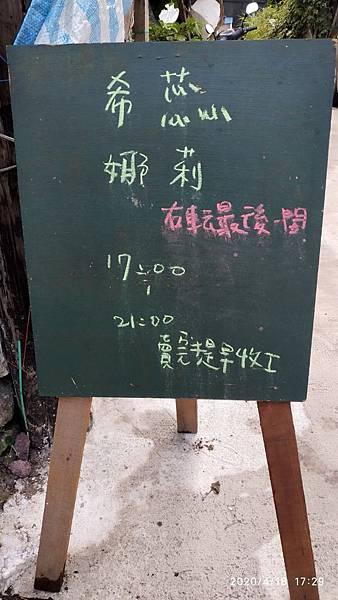 希蕊
娜莉
右転最後一間
17:00
|
21:00
賣完提早收工
2020/4/18 17:29